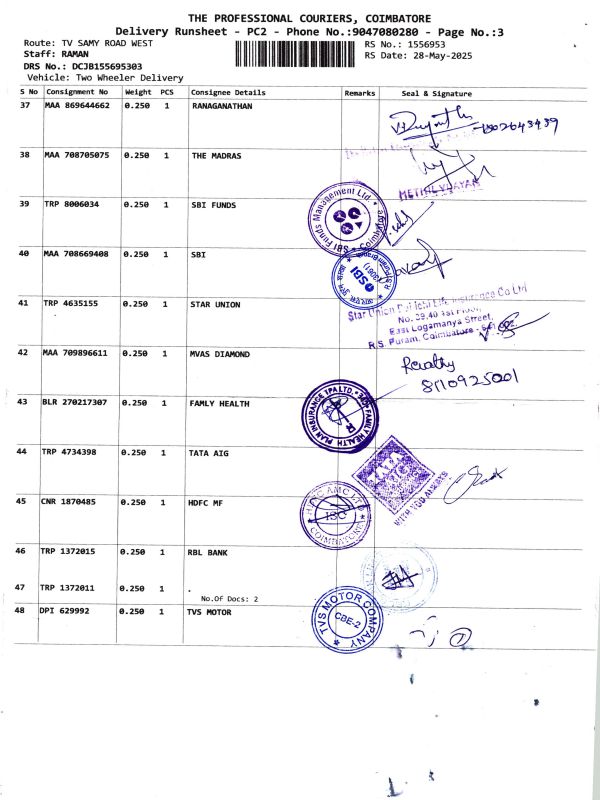 THE PROFESSIONAL COURIERS, COIMBATORE
Delivery Runsheet - PC2 - Phone No.:9047080280 - Page No.:3
Route: TV SAMY ROAD WEST
RS No.: 1556953
Staff: RAMAN
RS Date: 28-May-2025
DRS No.: DCJB155695303
Vehicle: Two Wheeler Delivery
S No Consignment No Weight PCS Consignee Details Remarks Seal & Signature
37 MAA 869644662 0.250 1 RANAGANATHAN
38 MAA 708705075 0.250 1 THE MADRAS
39 TRP 8006034 0.250 1 SBI FUNDS
SBI Funds Management Ltd. * Coimbatore
40 MAA 708669408 0.250 1 SBI
SBI
41 TRP 4635155 0.250 1 STAR UNION
Star Union Dai-ichi Life Insurance Co Ltd
No. 39,40 1st Floor,
East Logamanya Street,
R.S. Puram, Coimbatore -
42 MAA 709896611 0.250 1 MVAS DIAMOND
Revathy
8110925001
43 BLR 270217307 0.250 1 FAMLY HEALTH
FAMILY HEALTH PLAN INSURANCE TPA LTD.
44 TRP 4734398 0.250 1 TATA AIG
WITH YOU ALWAYS
45 CNR 1870485 0.250 1 HDFC MF
HDFC AMC LTD
ISC
COIMBATORE
46 TRP 1372015 0.250 1 RBL BANK
47 TRP 1372011 0.250 1 .
No.Of Docs: 2
48 DPI 629992 0.250 1 TVS MOTOR
TVS MOTOR COMPANY
CBE-2